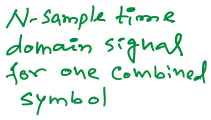 N-sample time
domain signal
for one combined
symbol